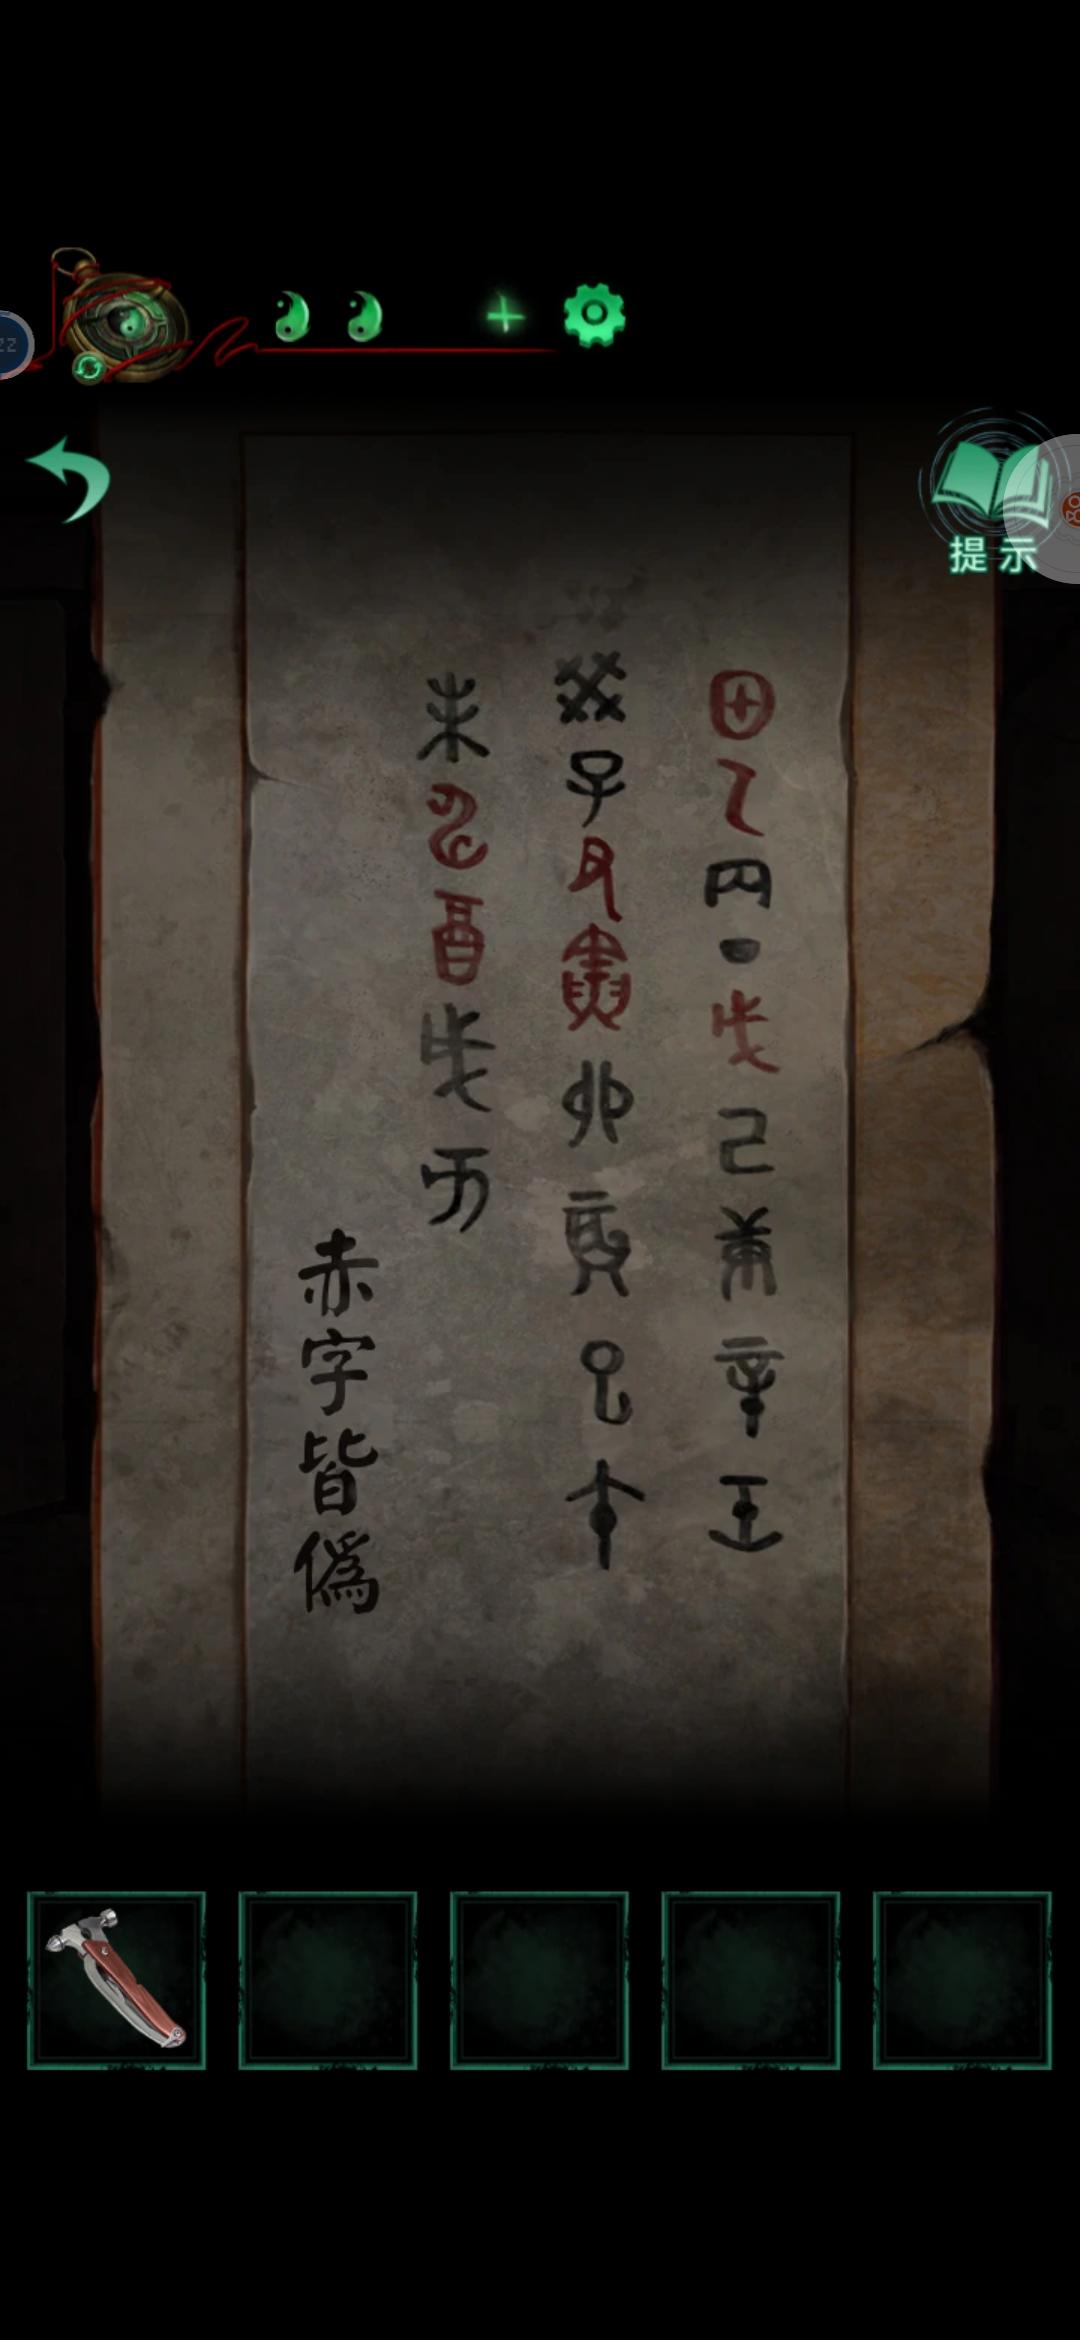 提示
甲乙丙丁戊己庚辛壬
癸子丑寅卯辰巳午
未申酉戌亥
赤字皆偽